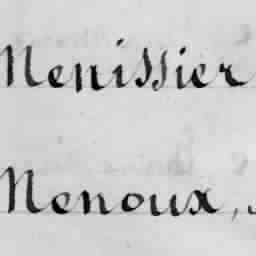 Menissier
Menoux,